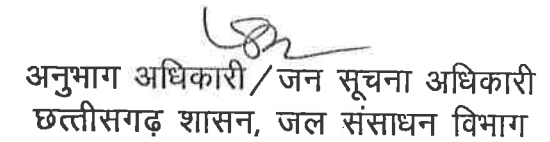 अनुभाग अधिकारी/जन सूचना अधिकारी
छत्तीसगढ़ शासन, जल संसाधन विभाग